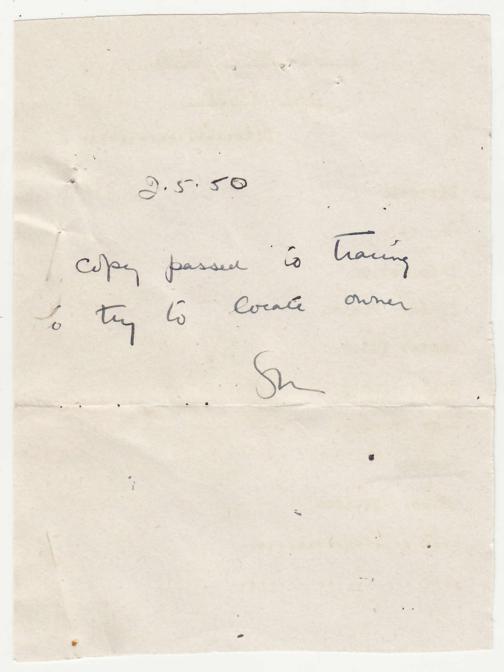 2.5.50
copy passed to tracing
to try to locate owner